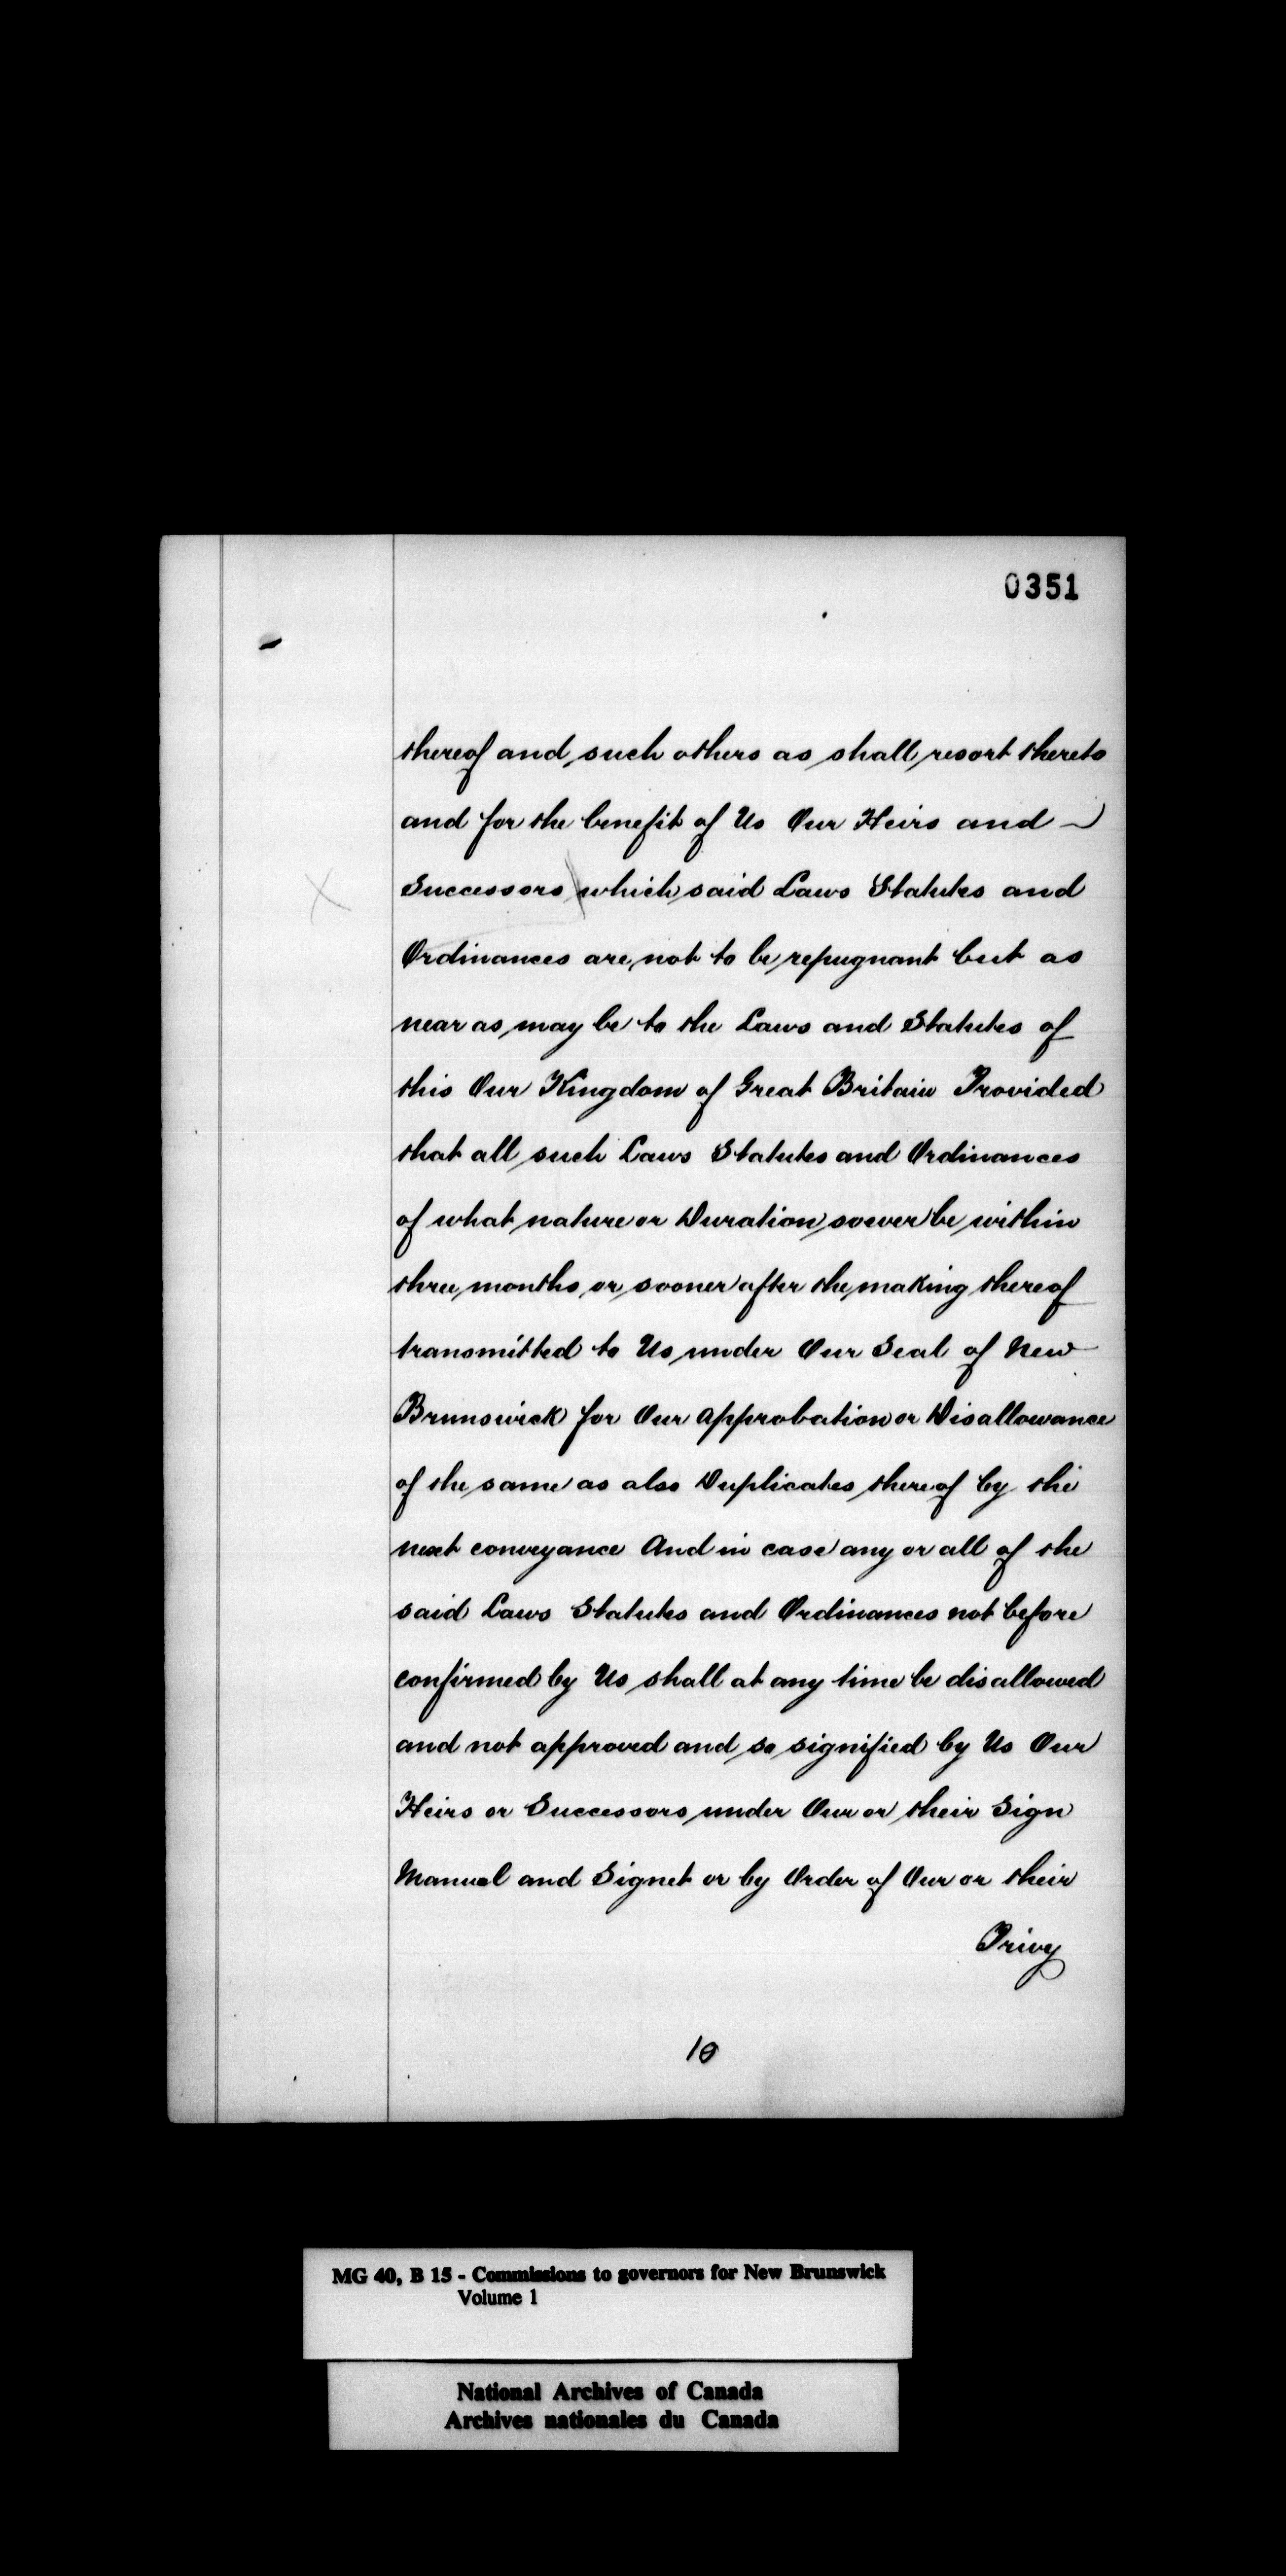 0351
thereof and such others as shall resort thereto
and for the benefit of Us Our Heirs and
Successors which said Laws Statutes and
Ordinances are not to be repugnant but as
near as may be to the Laws and Statutes of
this Our Kingdom of Great Britain Provided
that all such Laws Statutes and Ordinances
of what nature or Duration soever be within
three months or sooner after the making thereof
transmitted to Us under Our Seal of New
Brunswick for Our Approbation or Disallowance
of the same as also Duplicates thereof by the
next conveyance And in case any or all of the
said Laws Statutes and Ordinances not before
confirmed by Us shall at any time be disallowed
and not approved and so signified by Us Our
Heirs or Successors under Our or their Sign
Manual and Signet or by Order of Our or their
Privy
10
MG 40, B 15 - Commissions to governors for New Brunswick
Volume 1
National Archives of Canada
Archives nationales du Canada